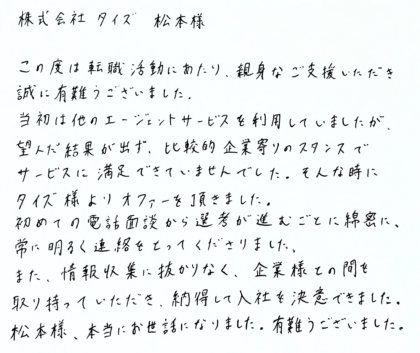 株式会社 タイズ 松本様
この度は転職活動にあたり、親身なご支援いただき
誠に有難うございました。
当初は他のエージェントサービスを利用していましたが、
望んだ結果が出ず、比較的企業寄りのスタンスで
サービスに満足できていませんでした。そんな時に
タイズ様よりオファーを頂きました。
初めての電話面談から選考が進むごとに綿密に、
常に明るく連絡をとってくださりました。
また、情報収集に抜かりなく、企業様との間を
取り持っていただき、納得して入社を決意できました。
松本様、本当にお世話になりました。有難うございました。